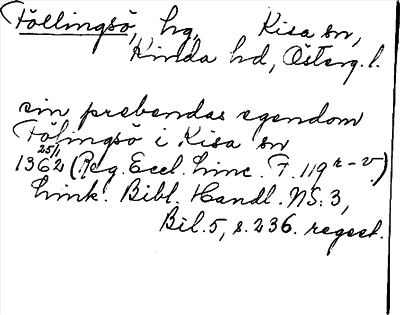 Föllingsö, hg, Kisa sn,
Kinda hd, Österg. l.
sin prebendas egendom
Fölingsö i Kisa sn
25/1 1362 (Reg. Eccl. Linc. F. 119 r-v)
Link. Bibl. Handl. NS: 3,
Bil. 5, s. 236. regest.